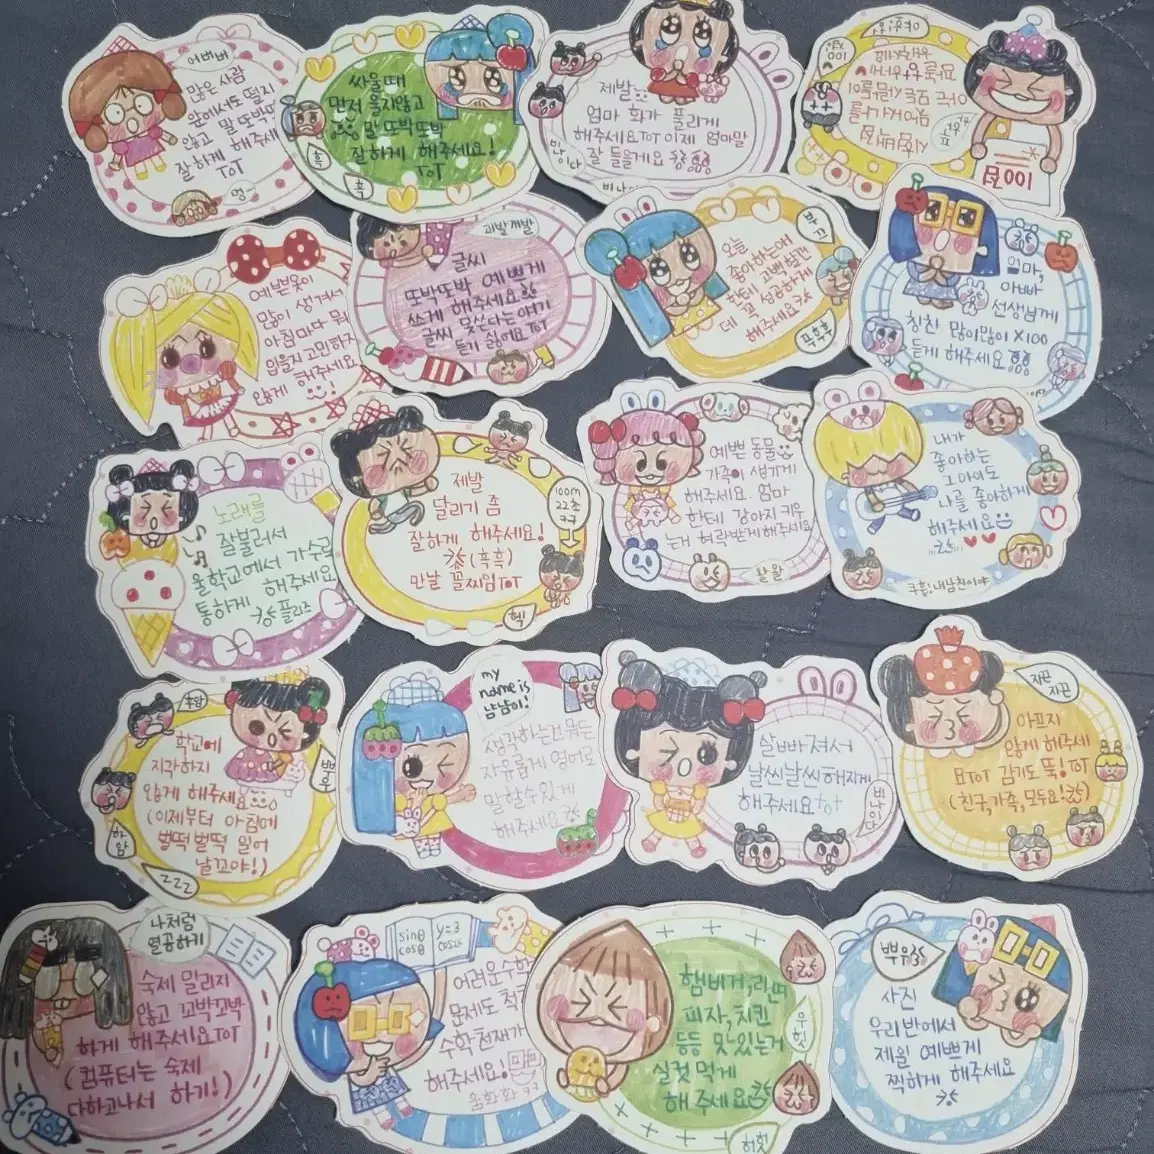 어버버
많은 사람
앞에서도 떨지
않고 말 또박또박
잘하게 해주세
ToT
멍-
싸울때
먼저 울지않고
말 또박또박
잘하게 해주세요!
ToT
흑
흑
제발
엄마 화가 풀리게
해주세요ToT 이제 엄마말
잘 들을게요
맘이다
비나이
100점
예쁜옷이
많이 생겨서
아침마다 뭐
입을지 고민하지
않게 해주세요
괴발개발
글씨
또박또박 예쁘게
쓰게 해주세요
글씨 못쓴다는 얘기
듣기 싫어요 ToT
오늘
좋아하는애
한테 고백할건
데 꼭 성공하게
해주세요
프후후
엄마,
아빠
선생님께
칭찬 많이많이 X100
듣게 해주세요
노래를
잘불러서
울학교에서 가수로
통하게 해주세요
플리즈
제발
달리기 좀
잘하게 해주세요!
(흑흑)
만날 꼴찌임 ToT
100m
22초
ㅋㅋ
헥
예쁜 동물
가족이 생기게
해주세요. 엄마
한테 강아지 키우
는거 허락받게해주세요
왈왈
내가
좋아하는
그아이도
나를 좋아하게
해주세요
쿠흠, 내남친이야
후암
학교에
지각하지
않게 해주세요
(이제부터 아침에
벌떡 벌떡 일어
날꼬야!)
뿌우
하암
zzz
my
name is
냠냠이!
생각하는건 뭐든
자유롭게 영어로
말할수있게
해주세요
살빠져서
날씬날씬 해지게
해주세요 ToT
비나이다
지끈
지끈
아프지
않게 해주세
요ToT 감기도 뚝! ToT
(친구,가족,모두요!)
나처럼
열공하기
숙제 밀리지
않고 꼬박꼬박
하게 해주세요 ToT
(컴퓨터는 숙제
다하고나서 하기!)
sinθ
cosθ
y=3
cos2x
어려운수학
문제도 척척
수학천재가
해주세요!
움화화 ㅋㅋ
햄버거,라면
피자, 치킨
등등 맛있는거
실컷 먹게
해주세요
우헛
허헛
뿌우
사진
우리반에서
제일 예쁘게
찍하게 해주세요